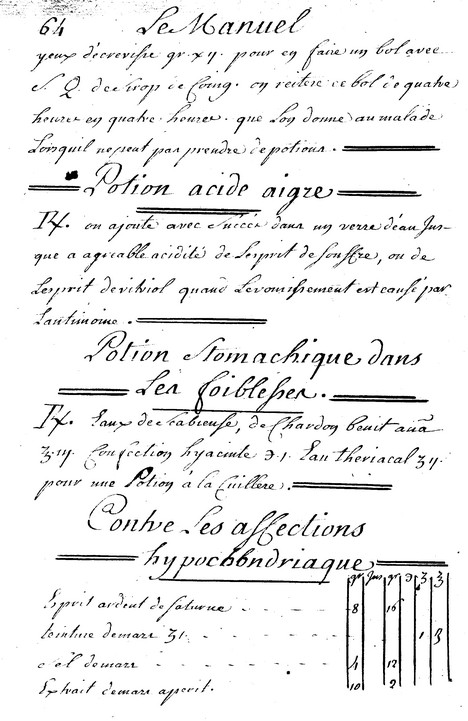 64 Le Manuel
yeux d'écrevisse gr. xij. pour en faire un bol avec
S. Q. de Sirop de Coing. on reitere ce bol de quatre
heures en quatre heures. que l'on donne au malade
Lorsquil ne peut pas prendre de potions.
Potion acide aigre
R. on ajoute avec Succès dans un verre d'éau Jus-
que a agreable acidité de L'esprit de Souffre, ou de
L'esprit de vitriol quand Le vomissement est causé par
L'antimoine.
Potion Stomachique dans
Les foiblesses.
R. Eaux de Scabieuse, de Chardon benit ana
ʒ. iij. Confection hyacinte ℈. i. Eau theriacal ʒ ij.
pour une Potion à la Cuillere.
Contre Les affections
hypochondriaque
gr Jus gr ℈ ʒ ʒ
Esprit ardent de Saturne 8 16
teinture de mars ʒi. 1 3
Sel de mars 4 12
Extrait de mars aperit. 10 2